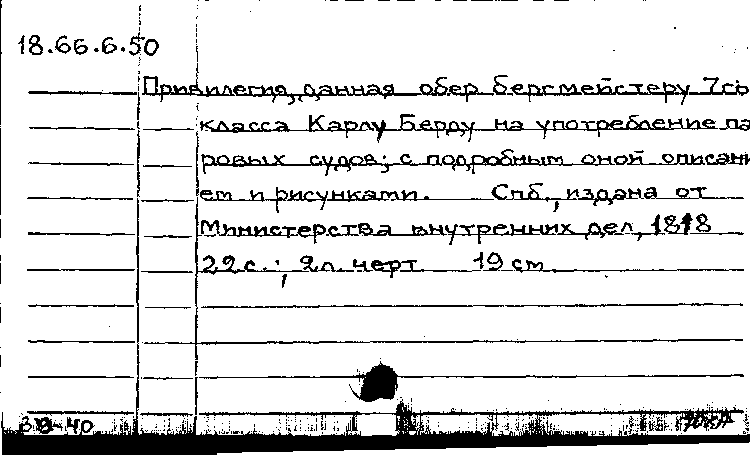 18.66.6.50
Привилегия, данная обер бергмейстеру 7го
класса Карлу Берду на употребление па
ровых судов; с подробным оной описани
ем и рисунками. Спб., издана от
Министерства внутренних дел, 1818
22 с.; 2 л. черт 19 cm.
39-40